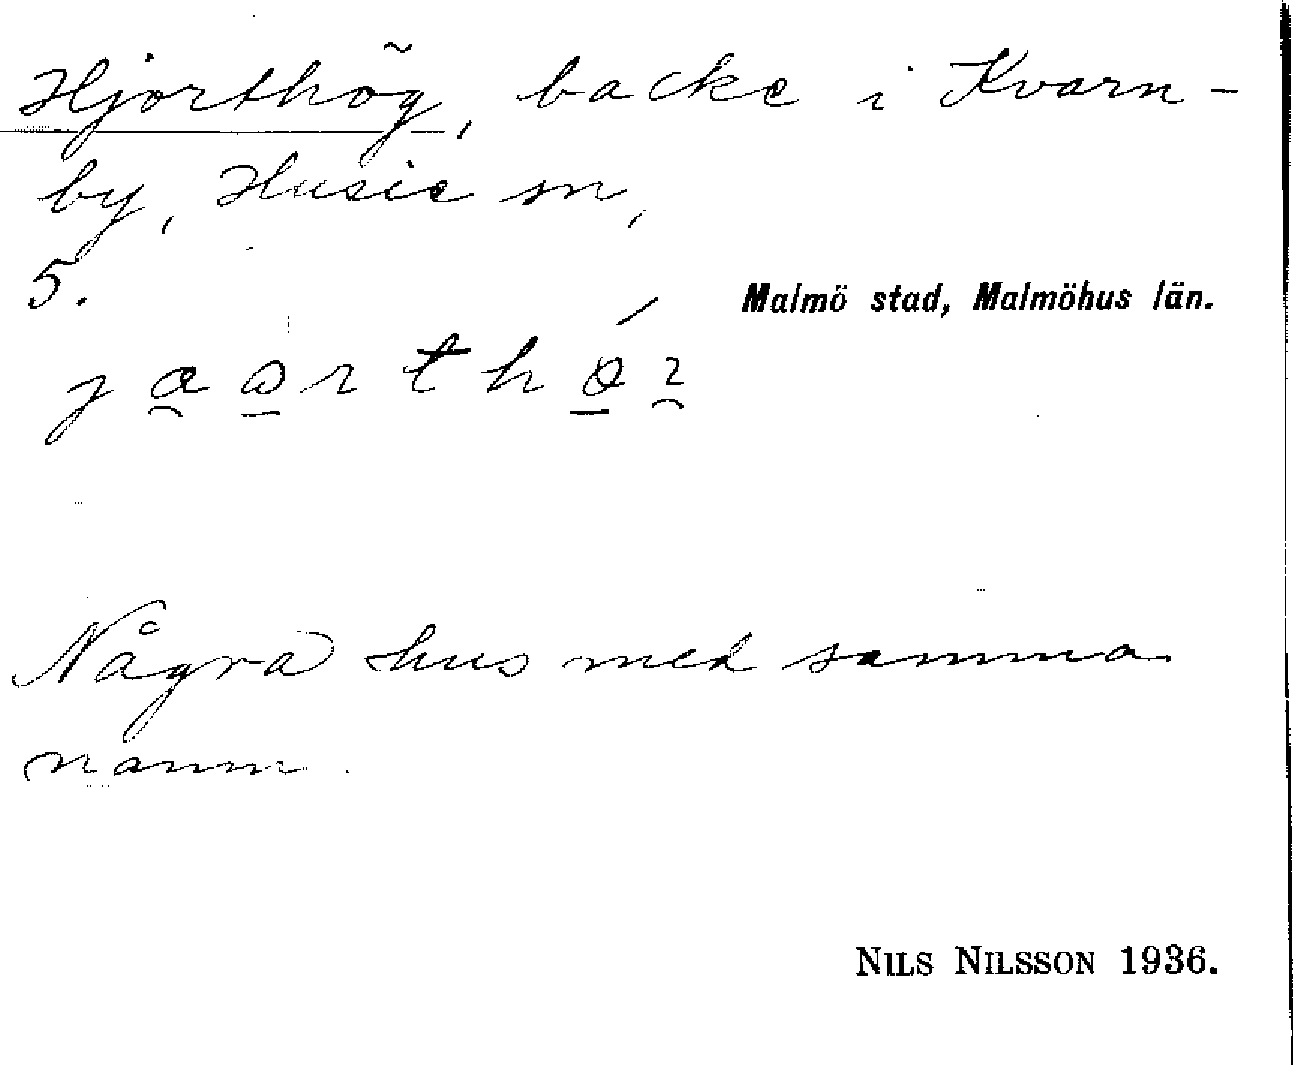 Hjorthög, backe i Kvarn-
by, Husie sn,
5.
Malmö stad, Malmöhus län.
Några hus med samma
namn.
NILS NILSSON 1936.